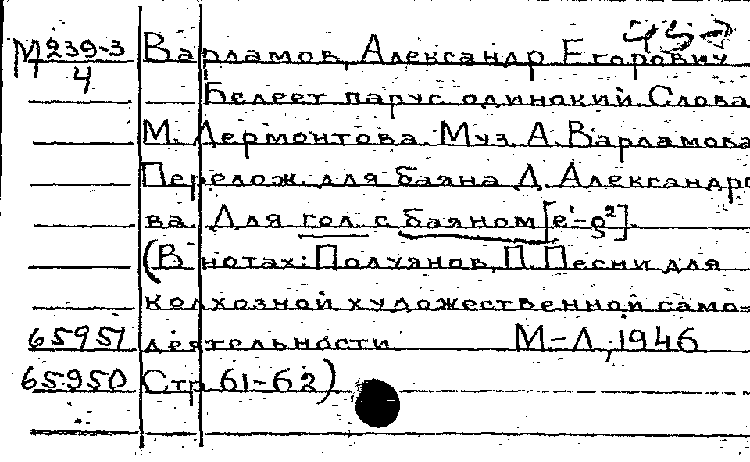 М239-3 Варламов, Александр Егорович
4
Белеет парус одинокий. Слова
М. Лермонтова. Муз. А. Варламова
Перелож. для баяна А. Александро
ва. Для гол. с баяном [e¹-g²]
(В нотах: Полуянов, П. Песни для
колхозной художественной само-
65951 деятельности М-Л, 1946
65950 Стр. 61-62)